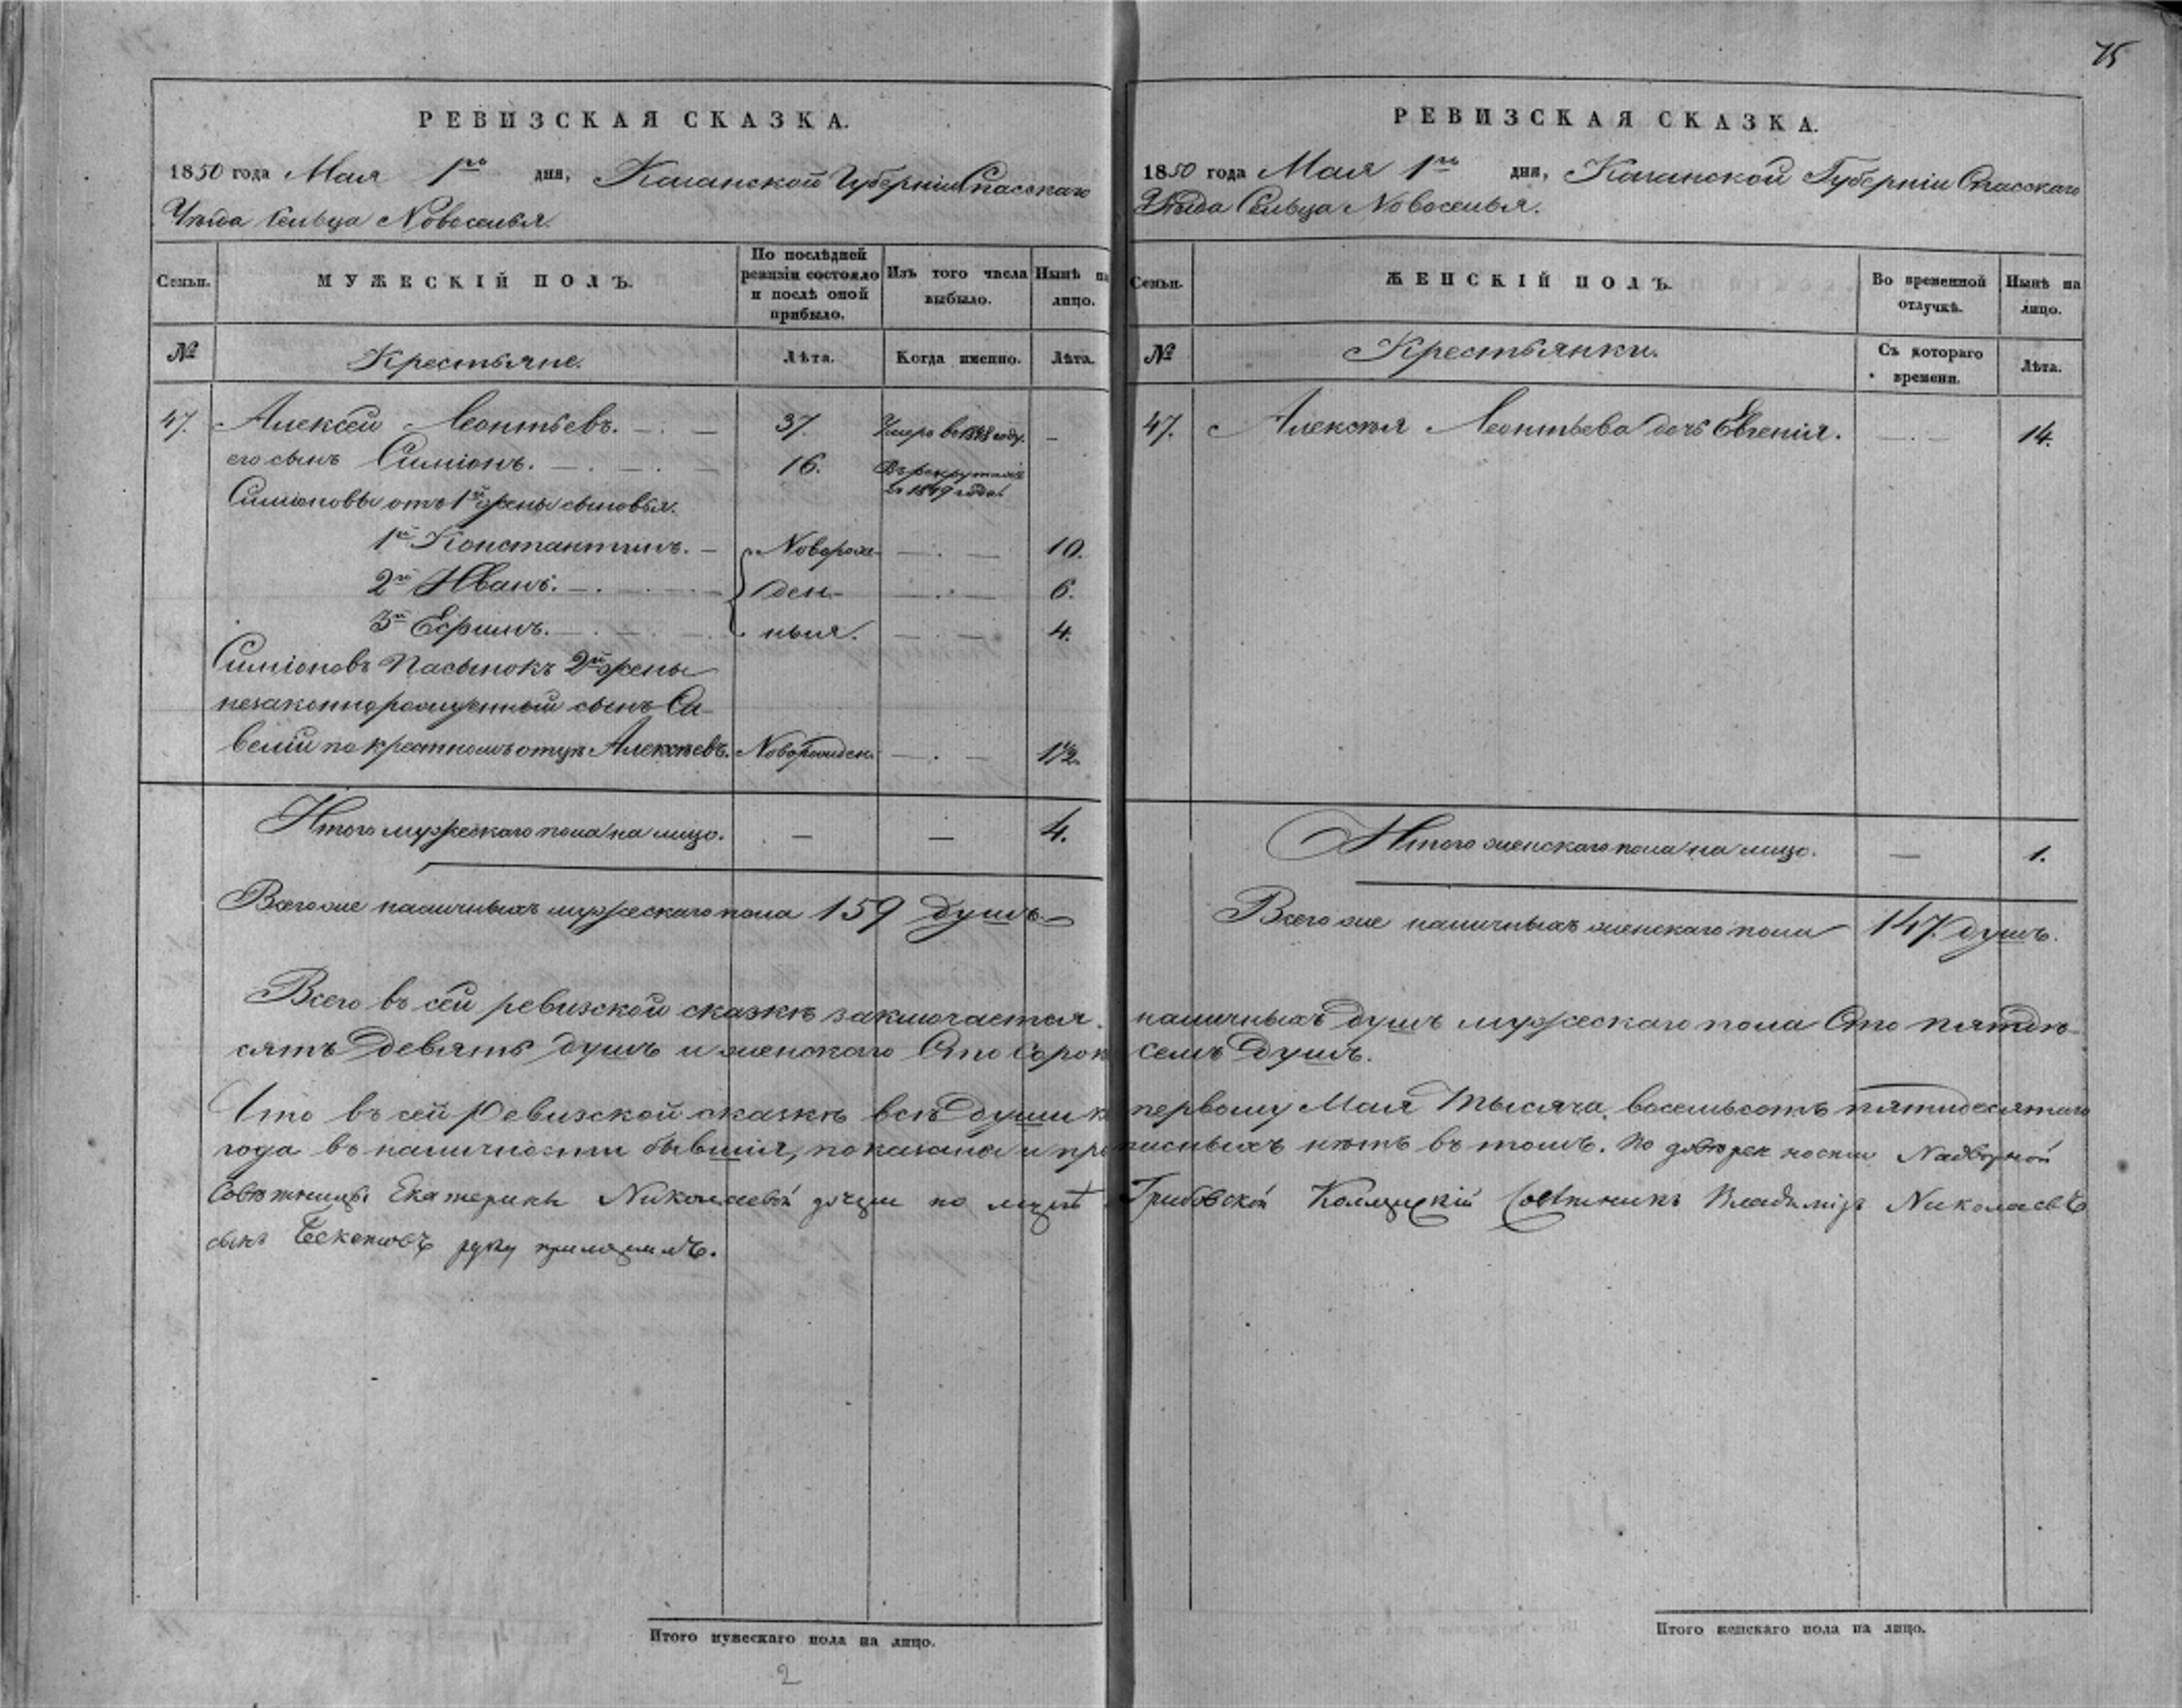 75
РЕВИЗСКАЯ СКАЗКА.
1850 года Мая 1го дня, Казанской Губерніи Спасскаго
Уѣзда Сельца Новоселья.
Семьи.
МУЖЕСКІЙ ПОЛЪ.
По послѣдней ревизіи состояло и послѣ оной прибыло.
Изъ того числа выбыло.
Нынѣ на лицо.
№
Крестьяне.
Лѣта.
Когда именно.
Лѣта.
47. Алексей Леонтьевъ. 37. Умеръ въ 1848 году. —
его сынъ Симіонъ. 16. Въ рекрутахъ
съ 1849 года.
Симіоновы отъ 1й жены сыновья.
1й Константинъ. Новорож- 10.
2й Иванъ. ден- 6.
3й Ефимъ. ныя. 4.
Симіоновъ Пасынокъ 2й жены
незаконнорожденный сынъ Са-
велій по крестномъ отцѣ Алексѣевъ. Новорожден. 1 1/2.
Итого мужескаго пола на лицо. — — 4.
Всего же наличныхъ мужескаго пола 159 душъ
РЕВИЗСКАЯ СКАЗКА.
1850 года Мая 1го дня, Казанской Губерніи Спасскаго
Уѣзда Сельца Новоселья.
Семьи.
ЖЕНСКІЙ ПОЛЪ.
Во временной отлучкѣ.
Нынѣ на лицо.
№
Крестьянки.
Съ котораго времени.
Лѣта.
47. Алексѣя Леонтьева дочь Евгенія. 14.
Итого женскаго пола на лицо. — 1.
Всего же наличныхъ женскаго пола 147. душъ.
Всего въ сей ревизской сказкѣ заключается наличныхъ душъ мужескаго пола Сто пятьде-
сятъ Девять душъ и женскаго Сто Сорок семь Душъ.
Что въ сей Ревизской сказкѣ всѣ души к первому Мая Тысяча восемьсотъ пятидесятаго
года въ наличности бывшія, показаны и прописныхъ нѣтъ въ томъ. По довѣренности Надворной
Совѣтницы Екатерины Николаевой дочери по мужѣ Грибовской Коллежскій Совѣтникъ Владиміръ Николаевъ
сынъ Бекетовъ руку приложилъ.
Итого мужескаго пола на лицо.
Итого женскаго пола на лицо.
2